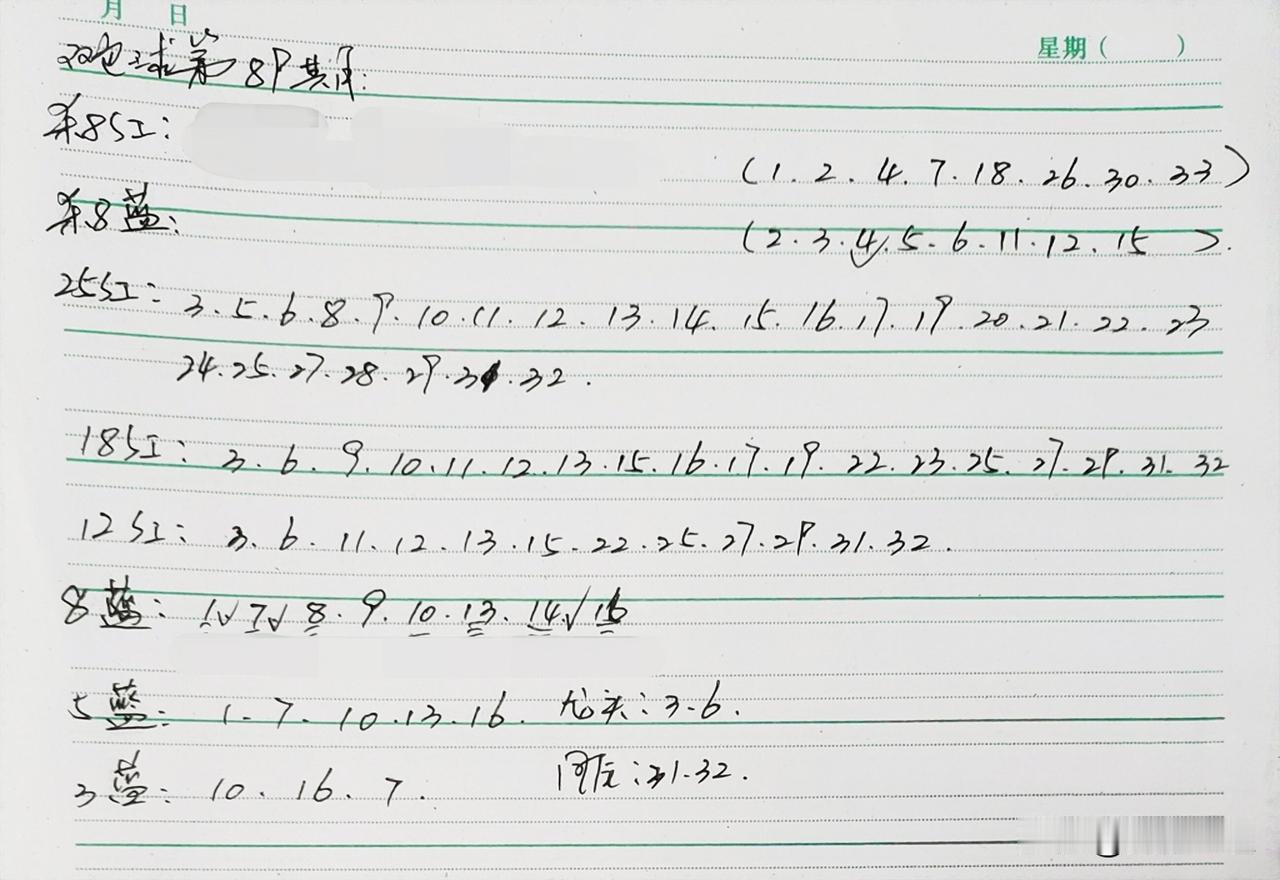 月 日
星期( )
双色球第89期:
杀8红:
(1.2.4.7.18.26.30.33)
杀8蓝:
(2.3.4.5.6.11.12.15).
25红: 3.5.6.8.9.10.11.12.13.14.15.16.17.19.20.21.22.23
24.25.27.28.29.31.32.
18红: 3.6.9.10.11.12.13.15.16.17.19.22.23.25.27.29.31.32
12红: 3.6.11.12.13.15.22.25.27.29.31.32.
8蓝: 1√7√8.9.10.13.14√16
5蓝: 1.7.10.13.16. 龙头:3.6.
3蓝: 10.16.7. 凤尾:31.32.